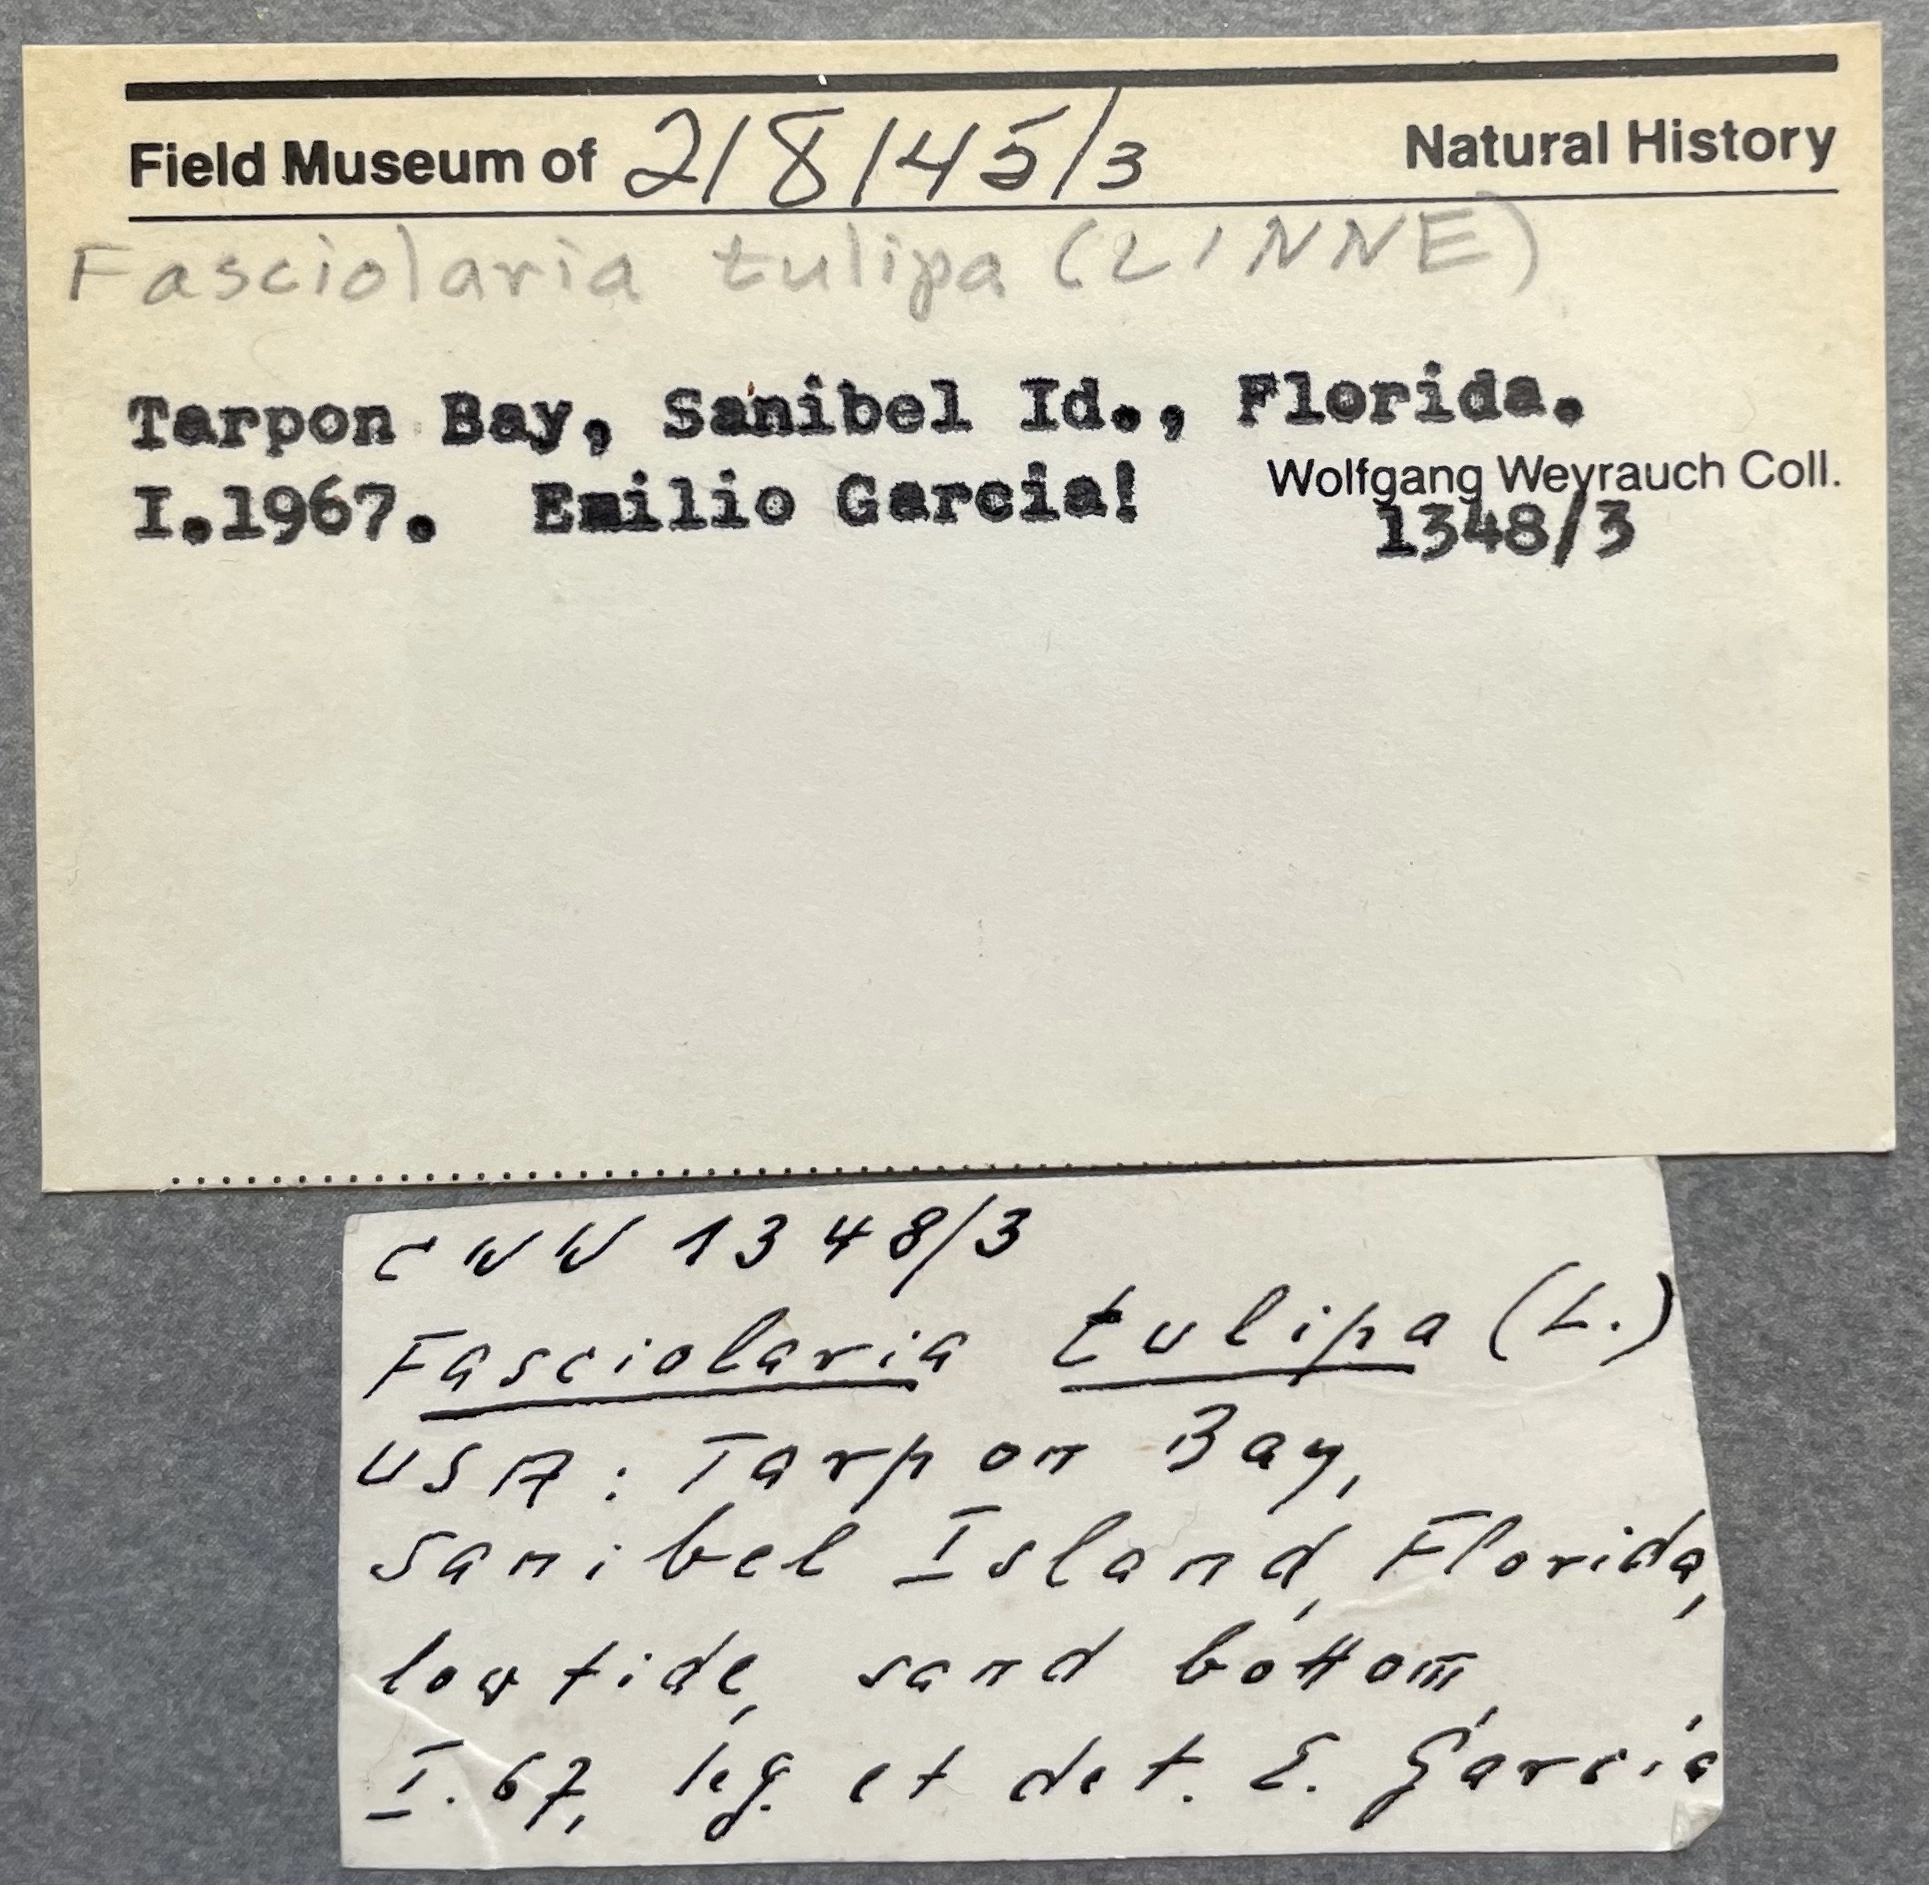 Field Museum of 218145/3 Natural History
Fasciolaria tulipa (LINNE)
Tarpon Bay, Sanibel Id., Florida.
Wolfgang Weyrauch Coll.
I.1967. Emilio Garcia!
1348/3
CWW 1348/3
Fasciolaria tulipa (L.)
USA: Tarpon Bay,
Sanibel Island, Florida,
low tide, sand bottom,
I.67, leg. et det. E. Garcia